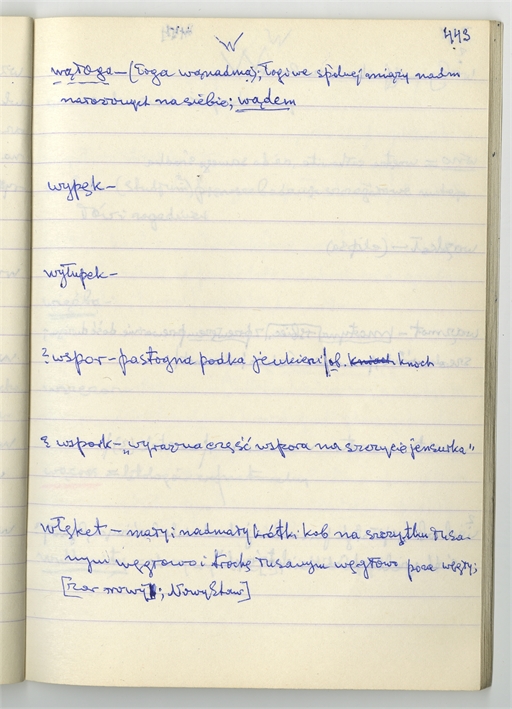 443
W
wążoga – (żoga wąnadma); żogiwe spólnej między nadm
narożonych na siebie; wądem
wypęk –
wyłupek –
? wspor – pastogna podka jenkieni / ob. knoch
? wspork – „wyrazna część wspora na szczycie jensurka"
włęket – mały i nadmały krótki kob na szczytku rusa-
nymi węgłowo i trochę rusanym węgłowo poza węgły;
[rzar nowy; Nowy Staw]